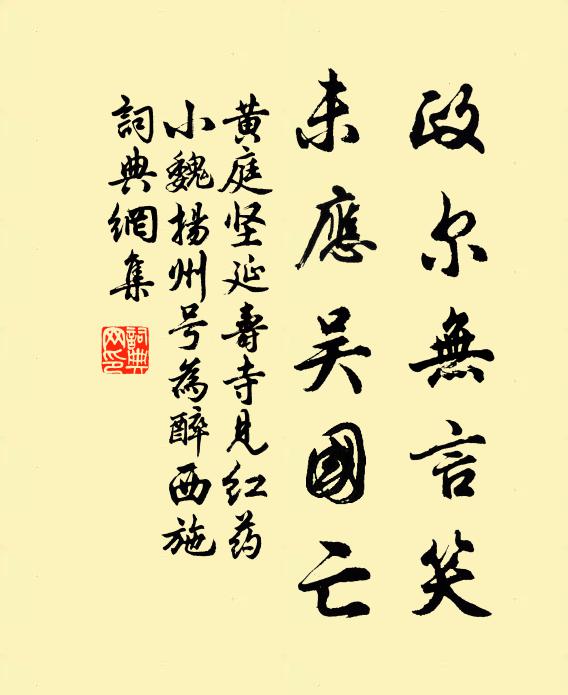 政尔無言笑
未應吴國亡
黄庭坚延壽寺見红药
小魏揚州号為醉西施
詞典網集
詞典
网印